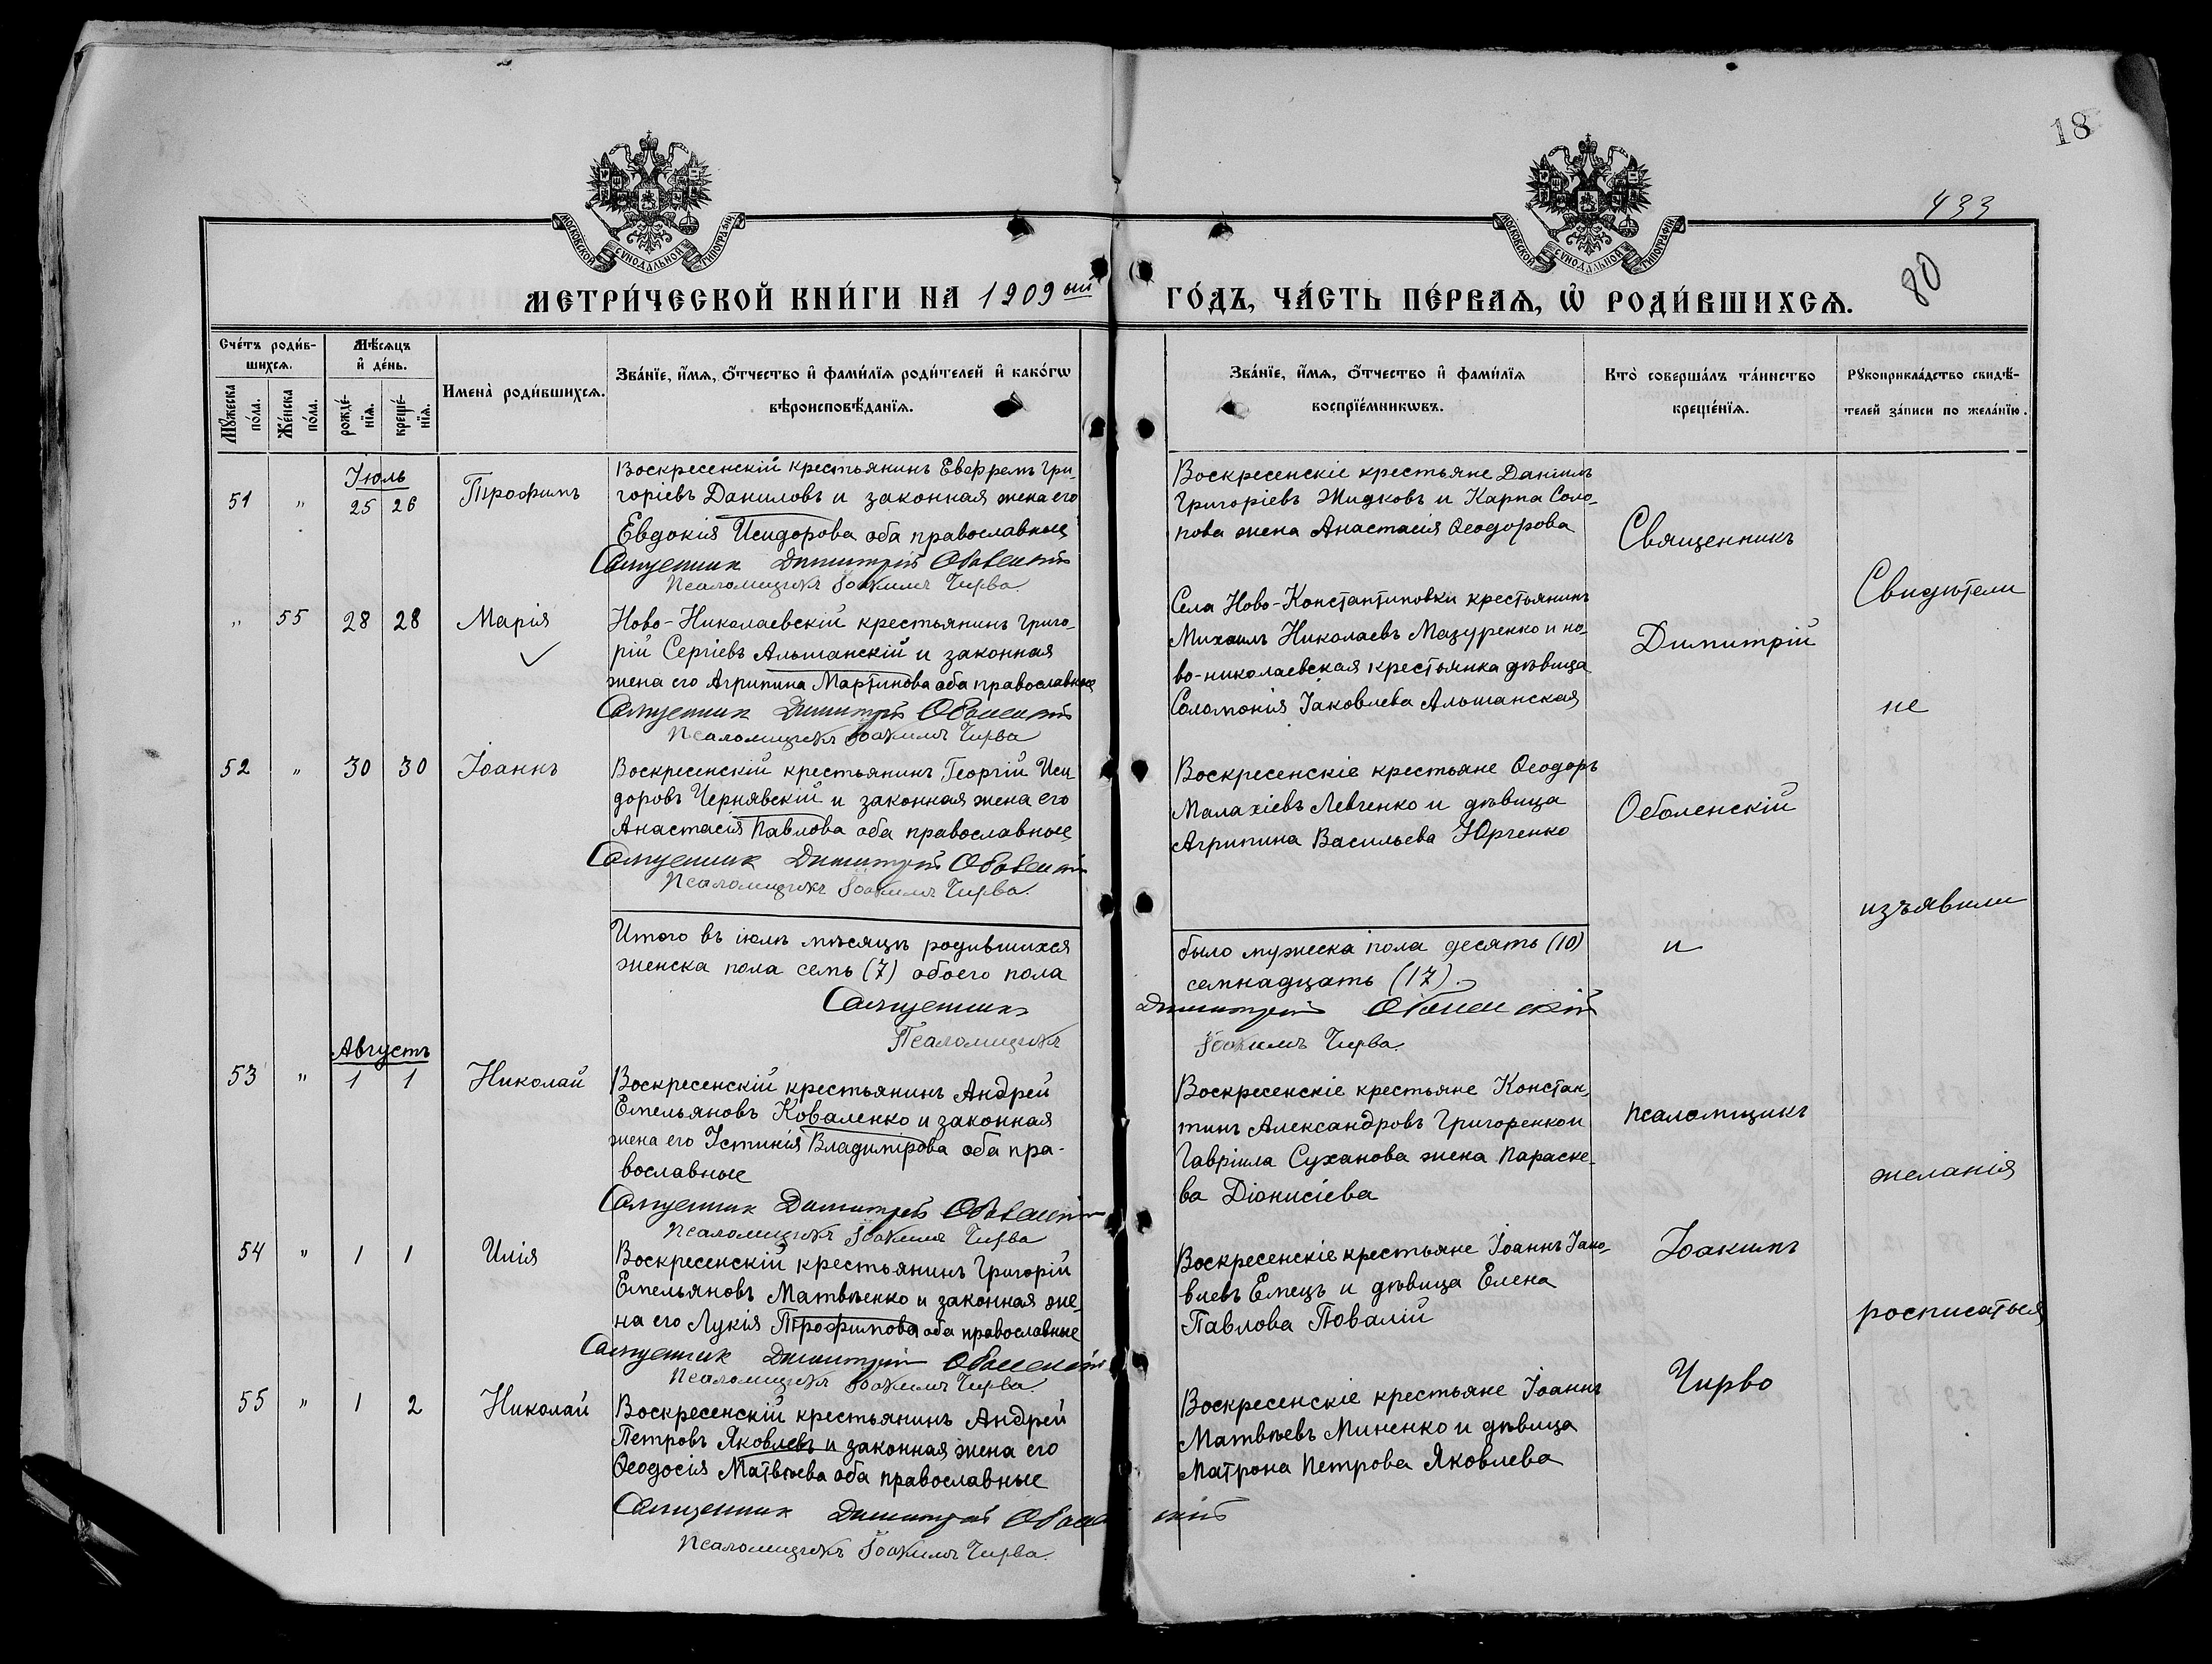 18
433
80
МОСКОВСКОЙ СѴНОДАЛЬНОЙ ТИПОГРАФІИ
МОСКОВСКОЙ СѴНОДАЛЬНОЙ ТИПОГРАФІИ
МЕТРИ́ЧЕСКОЙ КНИ́ГИ НА 1909 ый ГО́ДЪ, ЧА́СТЬ ПЕ́РВАѦ, Ѡ҆ РОДИ́ВШИХСѦ.
Сче́тъ роди́в-
шихсѧ.
Мѣ́сѧцъ
и҆ де́нь.
Мꙋ́жеска по́ла.
Же́нска по́ла.
рожде́-
нїѧ.
креще́-
нїѧ.
Имена̀ роди́вшихсѧ.
Зва́нїе, и҆́мѧ, ѻ҆́тчество и҆ фами́лїѧ роди́телей и҆ како́гѡ
вѣроисповѣ́данїѧ.
Зва́нїе, и҆́мѧ, ѻ҆́тчество и҆ фами́лїѧ
воспрїе́мникѡвъ.
Кто̀ соверша́лъ та́инство
креще́нїѧ.
Рꙋкоприкла́дство свидѣ́-
телей за́писи по жела́нїю.
Іюль
51 " 25 26 Трофимъ
Воскресенскій крестьянинъ Евфремъ Гри-
горіевъ Даниловъ и законная жена его
Евдокія Исидорова оба православные
Священник Димитрій Оболенскій
Псаломщикъ Іоакимъ Чирва
Воскресенскіе крестьяне Даніилъ
Григоріевъ Жидковъ и Карпа Соло-
пова жена Анастасія Ѳеодорова
" 55 28 28 Марія
Ново-Николаевскій крестьянинъ Григо-
рій Сергіевъ Альшанскій и законная
жена его Агрипина Мартинова оба православные
Священник Димитрій Оболенскій
Псаломщикъ Іоакимъ Чирва
Села Ново-Константиновки крестьянинъ
Михаилъ Николаевъ Мазуренко и но-
во-николаевская крестьянка дѣвица
Соломонія Іаковлева Альшанская
52 " 30 30 Іоаннъ
Воскресенскій крестьянинъ Георгій Иси
доровъ Чернявскій и законная жена его
Анастасія Павлова оба православные
Священник Димитрій Оболенскій
Псаломщикъ Іоакимъ Чирва.
Воскресенскіе крестьяне Ѳеодоръ
Малахіевъ Левченко и дѣвица
Агрипина Васильева Юрченко
Итого въ іюлѣ мѣсяцѣ родившихся было мужеска пола десять (10)
женска пола семь (7) обоего пола семнадцать (17).
Священникъ Димитрій Оболенскій
Псаломщикъ Іоакимъ Чирва.
Августъ
53 " 1 1 Николай
Воскресенскій крестьянинъ Андрей
Емельяновъ Коваленко и законная
жена его Істинія Владимірова оба пра-
вославные
Священник Димитрій Оболенскій
Псаломщикъ Іоакимъ Чирва
Воскресенскіе крестьяне Констан-
тинъ Александровъ Григоренко и
Гавріила Суханова жена Параске-
ва Діонисіева
54 " 1 1 Илія
Воскресенскій крестьянинъ Григорій
Емельяновъ Матвѣенко и законная же-
на его Лукія Трофимова оба православные
Священник Димитрій Оболенскій
Псаломщикъ Іоакимъ Чирва
Воскресенскіе крестьяне Іоаннъ Іако-
влевъ Емецъ и дѣвица Елена
Павлова Повалій
55 " 1 2 Николай
Воскресенскій крестьянинъ Андрей
Петровъ Яковлевъ и законная жена его
Ѳеодосія Матвѣева оба православные
Священник Димитрій Оболенскій
Псаломщикъ Іоакимъ Чирва.
Воскресенскіе крестьяне Іоаннъ
Матвѣевъ Миненко и дѣвица
Матрона Петрова Яковлева
Священникъ
Димитрій
Оболенскій
и
псаломщикъ
Іоакимъ
Чирво
Свидѣтели
не
изъявили
желанія
росписаться